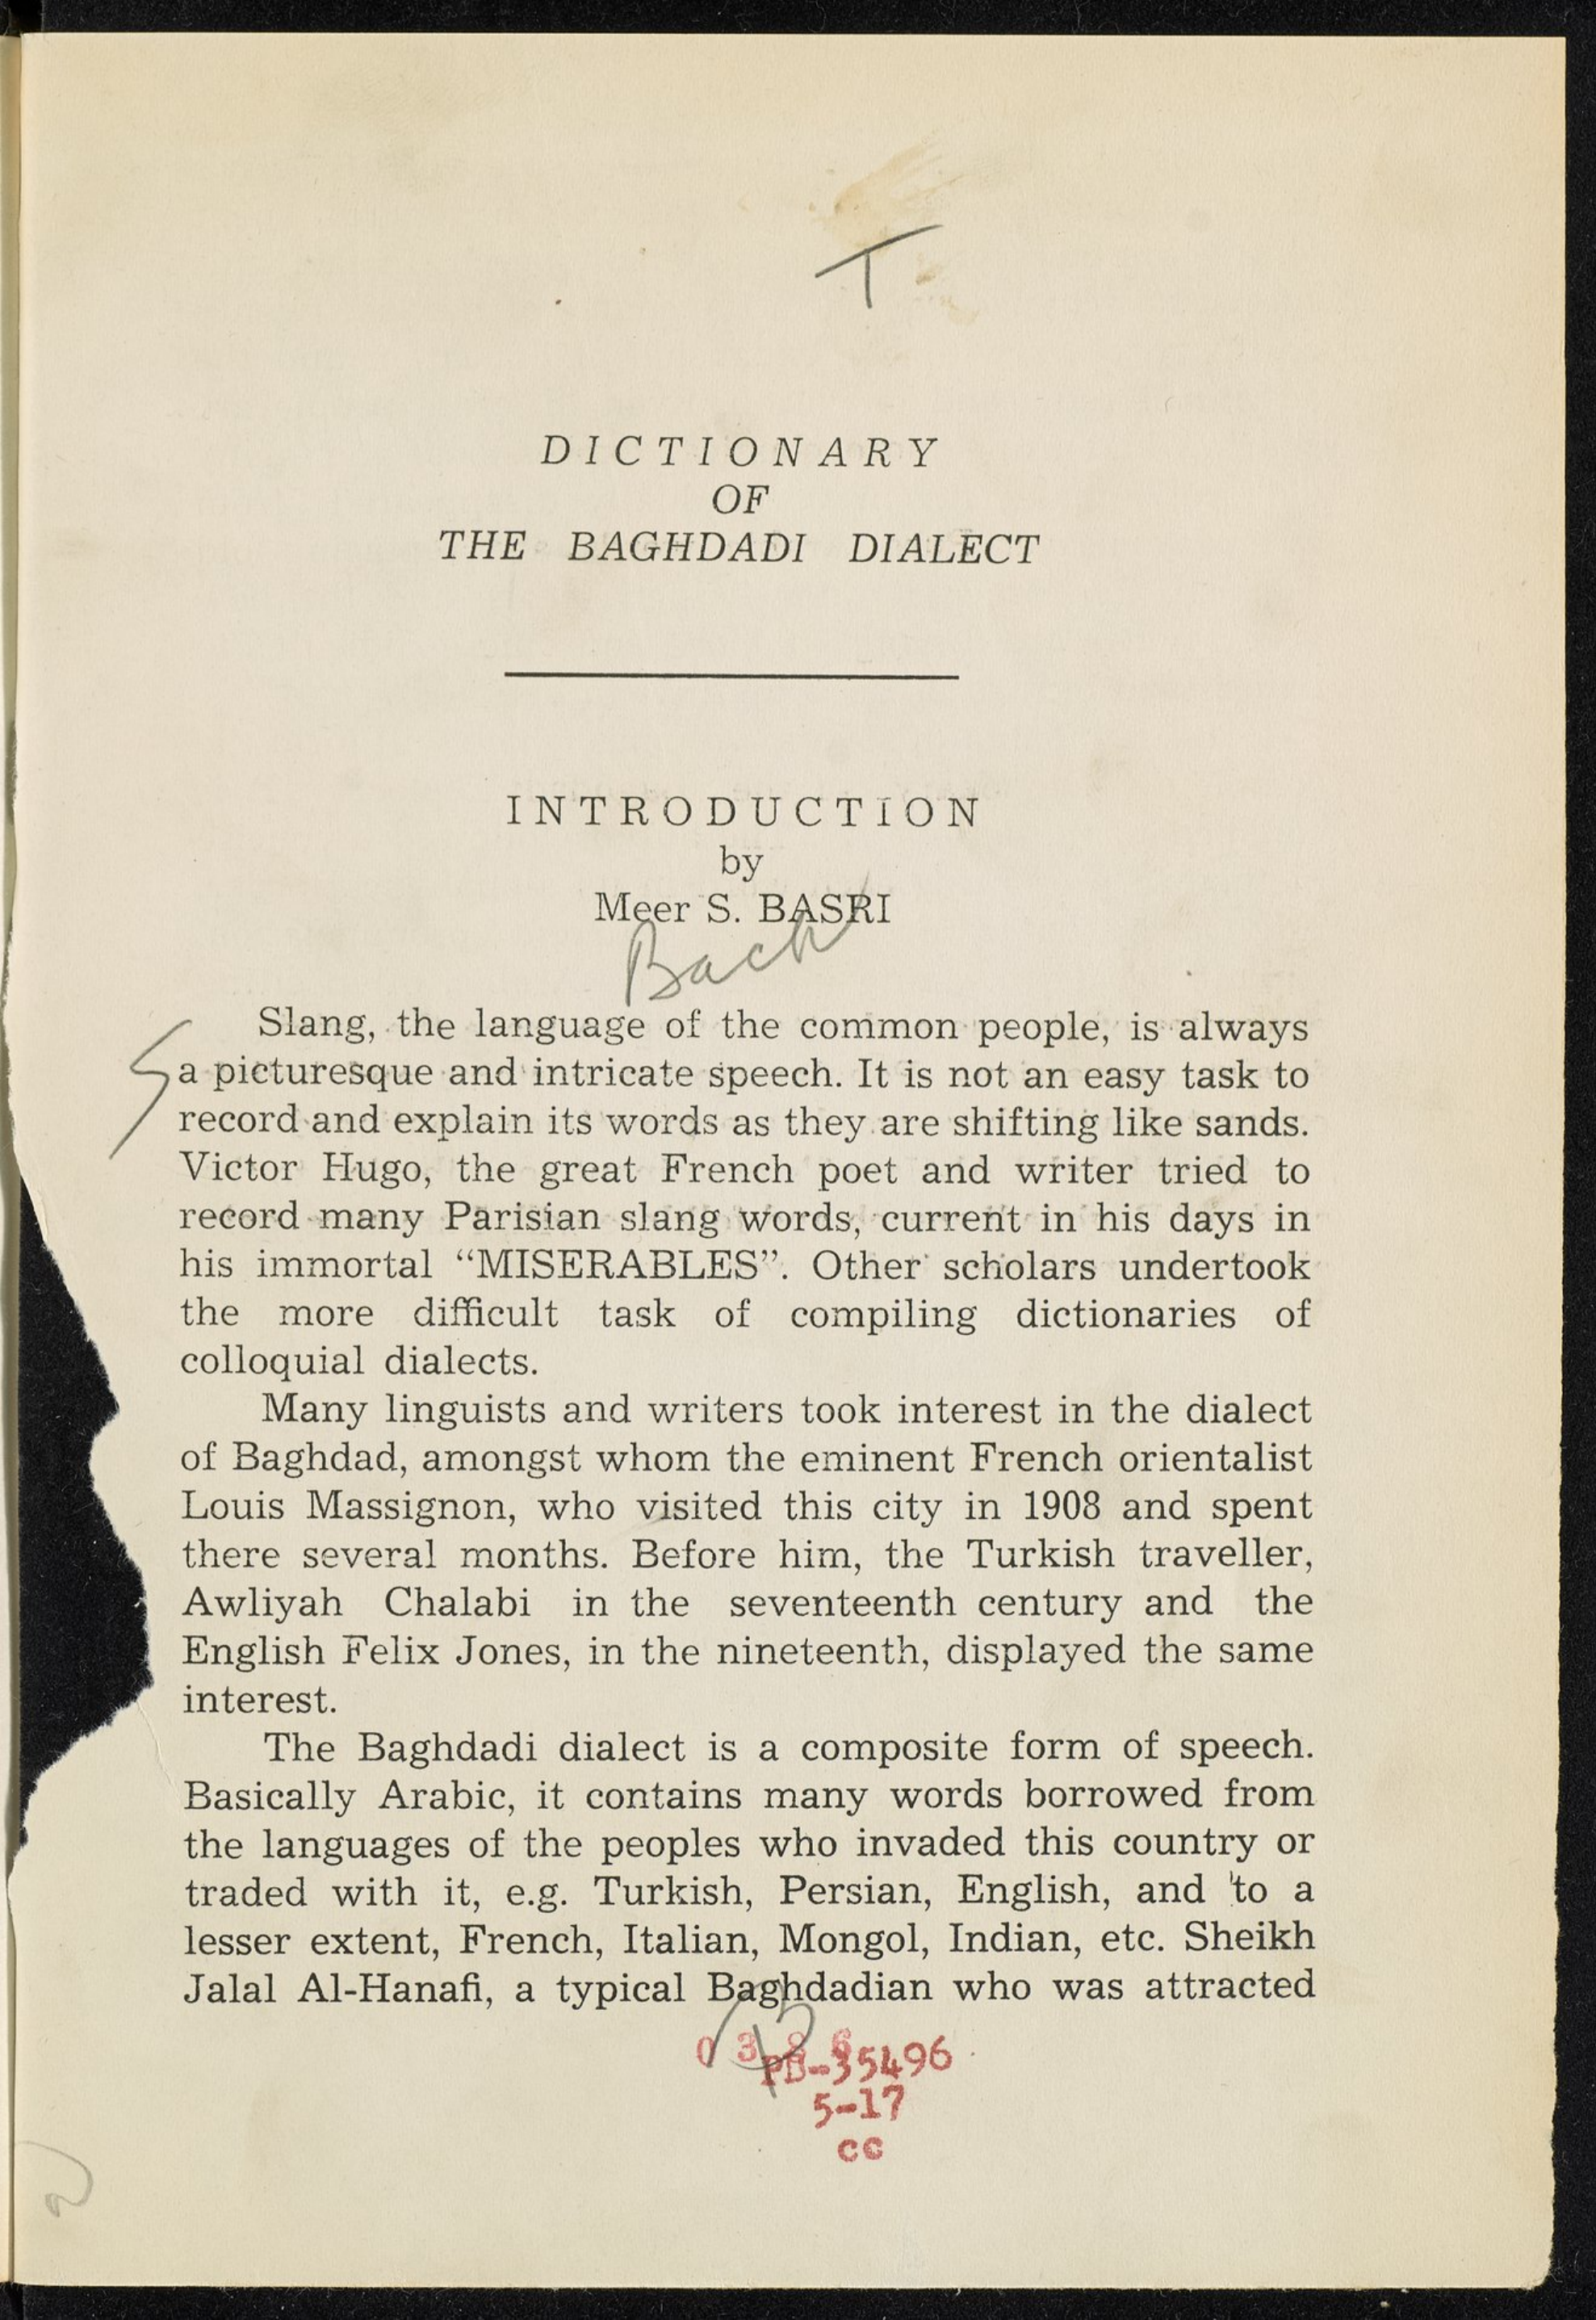 T
DICTIONARY
OF
THE BAGHDADI DIALECT
INTRODUCTION
by
Meer S. BASRI
Back
Slang, the language of the common people, is always
a picturesque and intricate speech. It is not an easy task to
record and explain its words as they are shifting like sands.
Victor Hugo, the great French poet and writer tried to
record many Parisian slang words, current in his days in
his immortal “MISERABLES”. Other scholars undertook
the more difficult task of compiling dictionaries of
colloquial dialects.
Many linguists and writers took interest in the dialect
of Baghdad, amongst whom the eminent French orientalist
Louis Massignon, who visited this city in 1908 and spent
there several months. Before him, the Turkish traveller,
Awliyah Chalabi in the seventeenth century and the
English Felix Jones, in the nineteenth, displayed the same
interest.
The Baghdadi dialect is a composite form of speech.
Basically Arabic, it contains many words borrowed from
the languages of the peoples who invaded this country or
traded with it, e.g. Turkish, Persian, English, and to a
lesser extent, French, Italian, Mongol, Indian, etc. Sheikh
Jalal Al-Hanafi, a typical Baghdadian who was attracted
PB-35496
5-17
cc